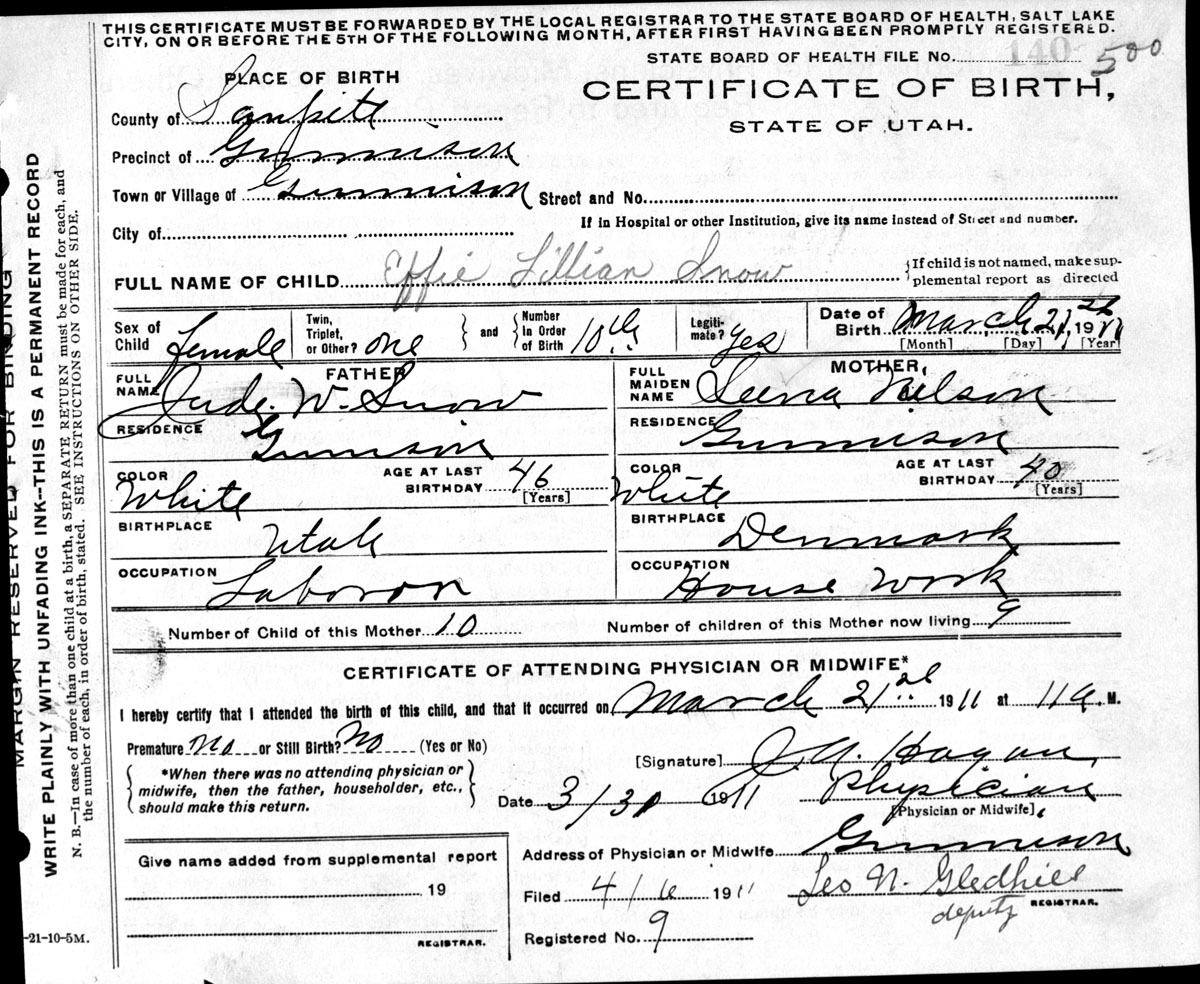 THIS CERTIFICATE MUST BE FORWARDED BY THE LOCAL REGISTRAR TO THE STATE BOARD OF HEALTH, SALT LAKE
CITY, ON OR BEFORE THE 5TH OF THE FOLLOWING MONTH, AFTER FIRST HAVING BEEN PROMPTLY REGISTERED.
STATE BOARD OF HEALTH FILE No. 140 500
PLACE OF BIRTH
CERTIFICATE OF BIRTH,
STATE OF UTAH.
County of Sanpete
Precinct of Gunnison
Town or Village of Gunnison Street and No.
If in Hospital or other Institution, give its name instead of Street and number.
City of
FULL NAME OF CHILD Effie Lillian Snow {If child is not named, make sup-
plemental report as directed
Sex of Child female Twin, Triplet, or Other? one } and { Number In Order of Birth 10th Legiti- mate? yes Date of Birth March 21, 1911
[Month] [Day] [Year]
FATHER MOTHER
FULL NAME Jude. W. Snow FULL MAIDEN NAME Leena Nelson
RESIDENCE Gunnison RESIDENCE Gunnison
COLOR White AGE AT LAST BIRTHDAY 46 [Years] COLOR White AGE AT LAST BIRTHDAY 40 [Years]
BIRTHPLACE Utah BIRTHPLACE Denmark
OCCUPATION Laboror OCCUPATION House Work
Number of Child of this Mother 10 Number of children of this Mother now living 9
CERTIFICATE OF ATTENDING PHYSICIAN OR MIDWIFE*
I hereby certify that I attended the birth of this child, and that it occurred on March 21 1911 at 11 a. M.
Premature no or Still Birth? No (Yes or No)
{*When there was no attending physician or
midwife, then the father, householder, etc.,
should make this return.}
[Signature] Hagan
Date 3/30 1911 Physician
[Physician or Midwife]
Give name added from supplemental report
19
REGISTRAR.
Address of Physician or Midwife Gunnison
Filed 4/6 1911 Leo N. Gledhill
deputy REGISTRAR.
Registered No. 9
-21-10-5M.
MARGIN RESERVED FOR BINDING
WRITE PLAINLY WITH UNFADING INK--THIS IS A PERMANENT RECORD
N. B.—In case of more than one child at a birth, a SEPARATE RETURN must be made for each, and
the number of each, in order of birth, stated. SEE INSTRUCTIONS ON OTHER SIDE.